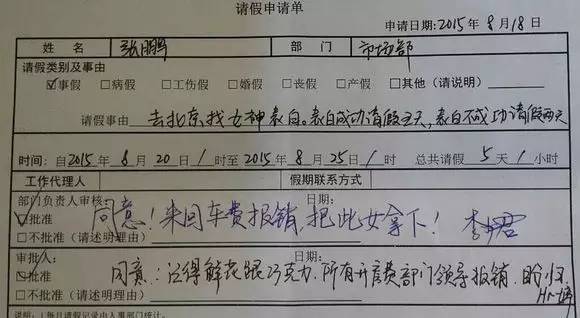 请假申请单
申请日期:2015年8月18日
姓名 张鹏 部门 市场部
请假类别及事由
☑事假 □病假 □工伤假 □婚假 □丧假 □产假 □其他(请说明)
请假事由 去北京找女神表白。表白成功请假五天,表白不成功请假两天
时间:自2015年8月20日1时至2015年8月25日1时 总共请假5天1小时
工作代理人 假期联系方式
部门负责人审核: 日期:
☑批准 同意!来回车费报销,把此女拿下! 李君
□不批准(请述明理由)
审批人: 日期:
☑批准 同意:记得鲜花跟巧克力,所有开房费部门领导报销,盼归
□不批准(请述明理由) Hr
说明:1.每月请假记录由人事部门统计。